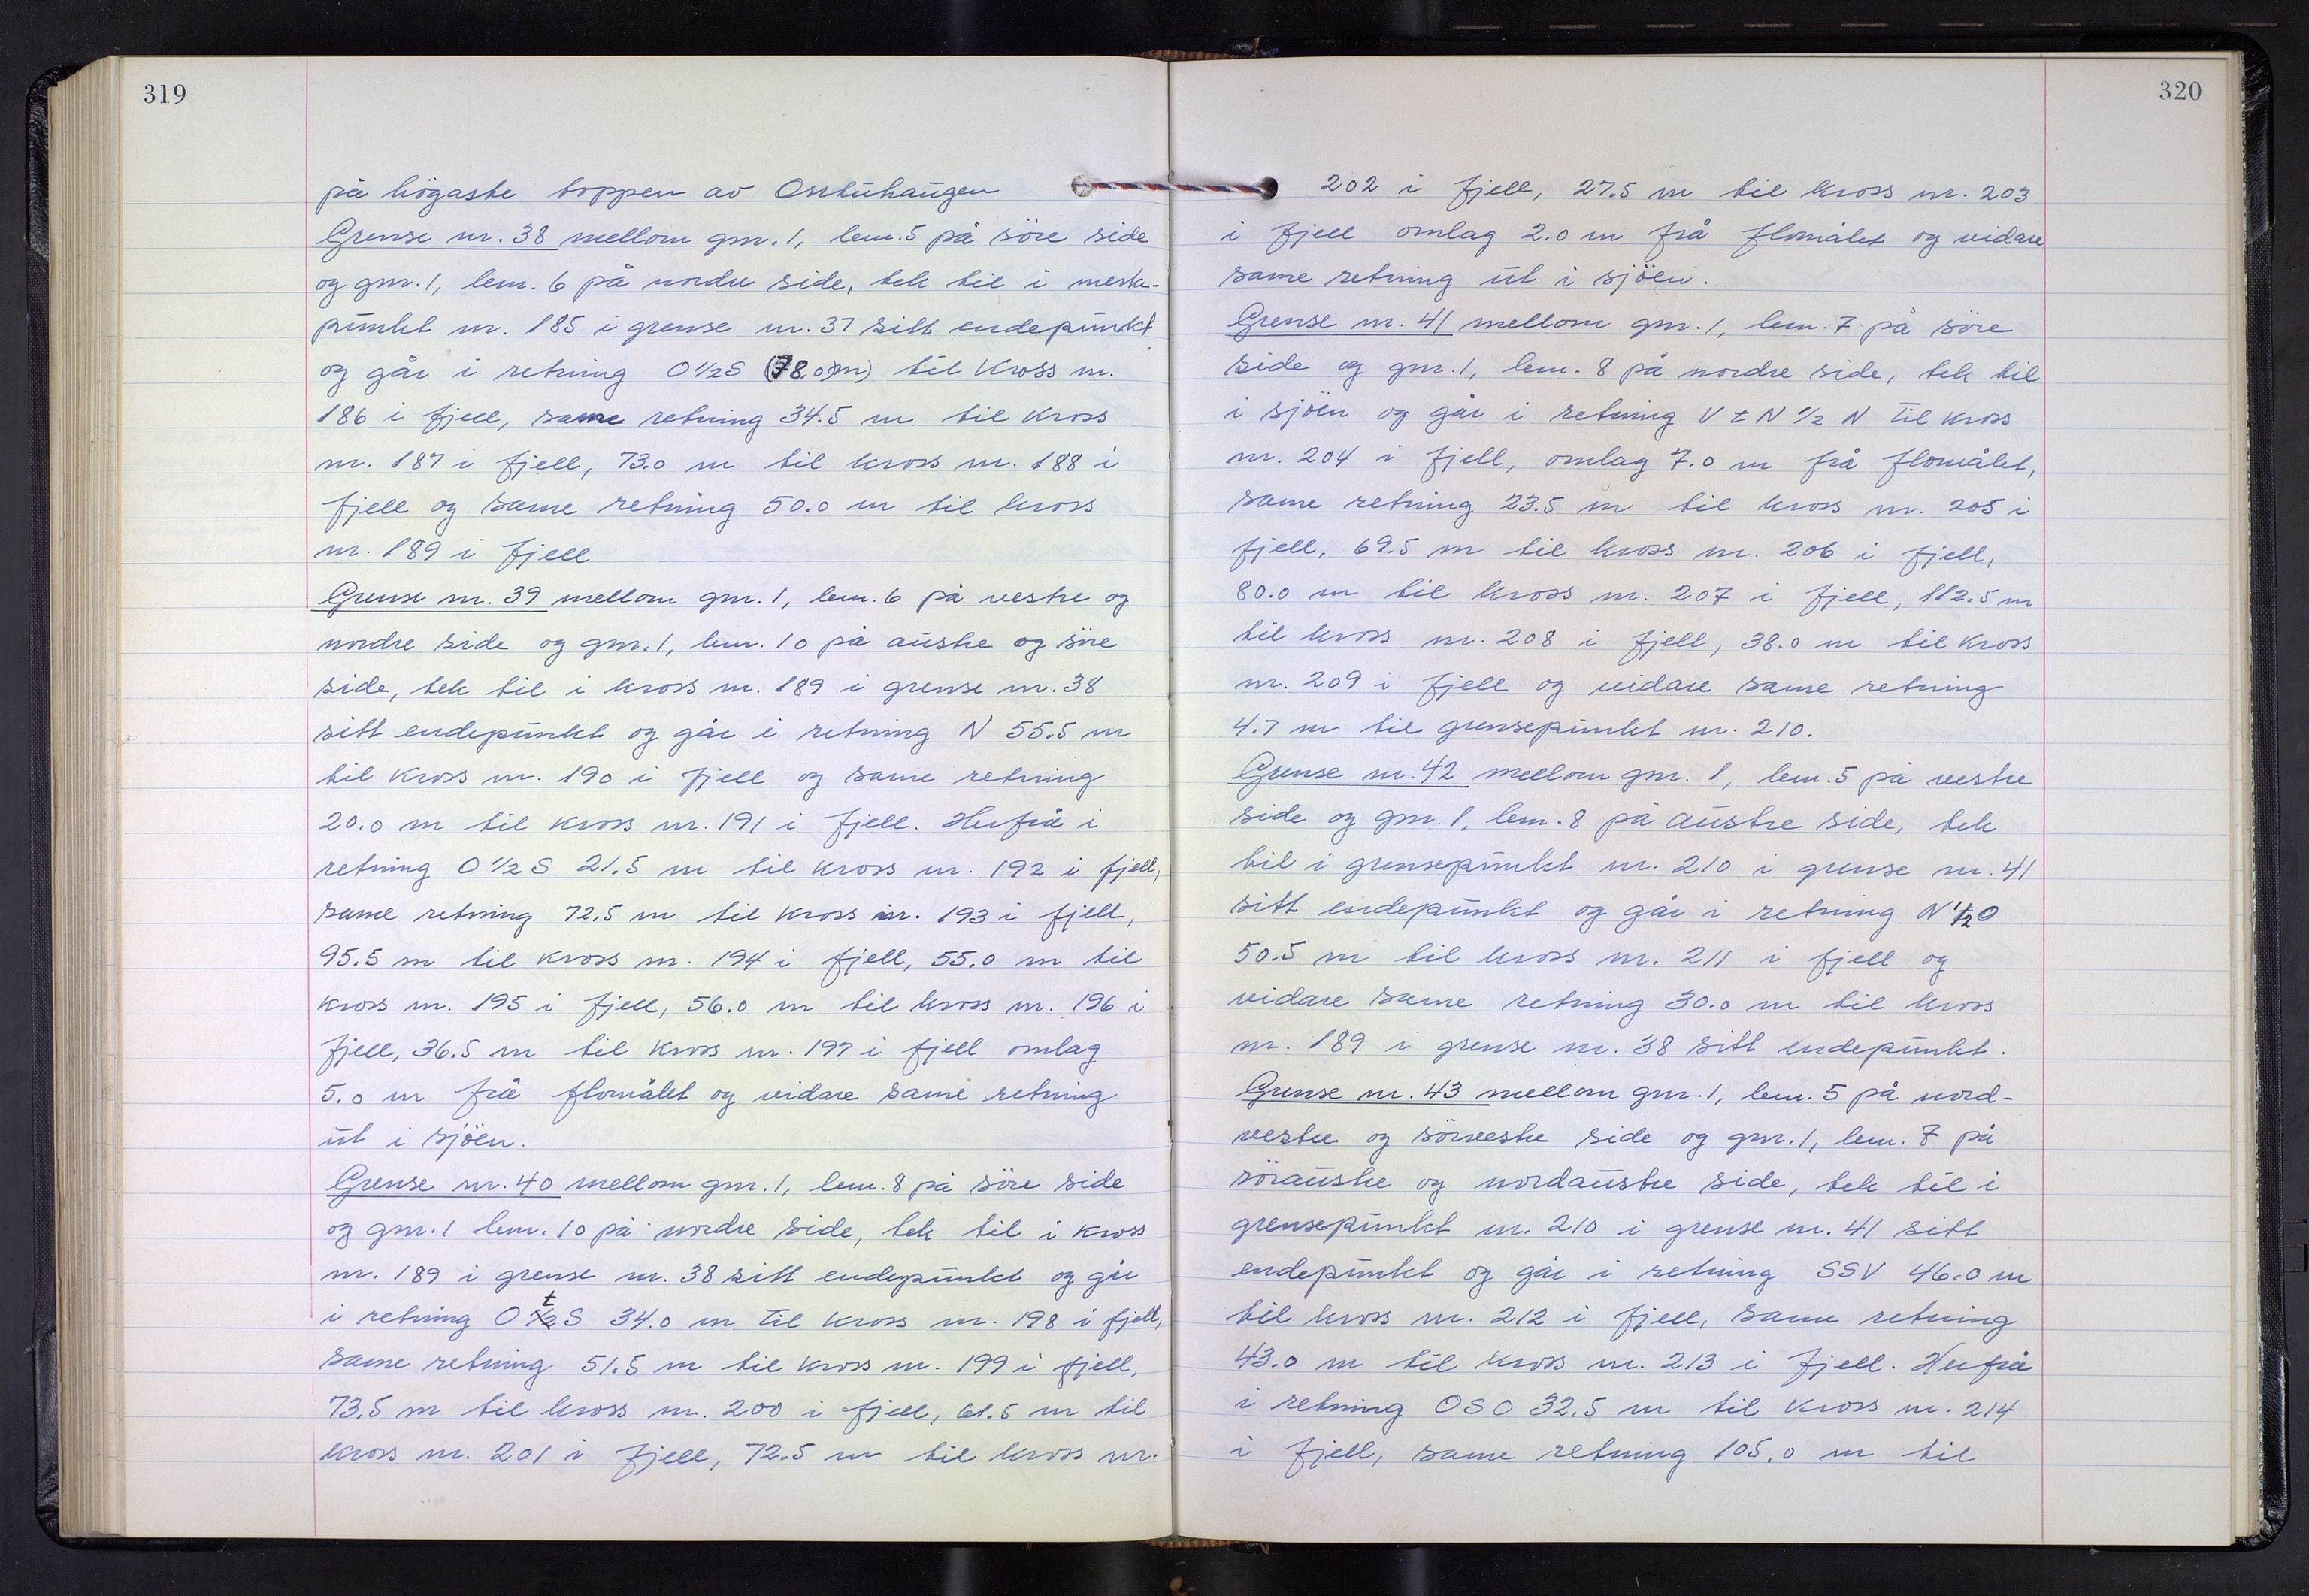 319
på högaste toppen av
Grense nr. 38 mellom gnr. 1, lem. 5 på söre side
og gnr. 1, lem. 6 på nordre side, tek til i merke-
punkt nr. 185 i grense nr. 37 sitt endepunkt
og går i retning O½S (78.0m) til Kross nr.
186 i fjell, same retning 34.5 m til kross
nr. 187 i fjell, 73.0 m til kross nr. 188 i
fjell og same retning 50.0 m til kross
nr. 189 i fjell
Grense nr. 39 mellom gnr. 1, lem. 6 på vestre og
nordre side og gnr. 1, lem. 10 på austre og söre
side, tek til i kross nr. 189 i grense nr. 38
sitt endepunkt og går i retning N 55.5 m
til kross nr. 190 i fjell og same retning
20.0 m til kross nr. 191 i fjell. Herfrå i
retning O ½ S 21.5 m til kross nr. 192 i fjell,
same retning 72.5 m til kross nr. 193 i fjell,
95.5 m til kross nr. 194 i fjell, 55.0 m til
kross nr. 195 i fjell, 56.0 m til kross nr. 196 i
fjell, 36.5 m til kross nr. 197 i fjell omlag
5.0 m frå flomålet og vidare same retning
ut i sjöen.
Grense nr. 40 mellom gnr. 1, lem. 8 på söre side
og gnr. 1 lem. 10 på nordre side, tek til i kross
nr. 189 i grense nr. 38 sitt endepunkt og går
i retning O t S 34.0 m til kross nr. 198 i fjell,
same retning 51.5 m til kross nr. 199 i fjell,
73.5 m til kross nr. 200 i fjell, 61.5 m til
kross nr. 201 i fjell, 72.5 m til kross nr.
320
202 i fjell, 27.5 m til kross nr. 203
i fjell omlag 2.0 m frå flomålet og vidare
same retning ut i sjöen.
Grense nr. 41 mellom gnr. 1, lem. 7 på söre
side og gnr. 1, lem. 8 på nordre side, tek til
i sjöen og går i retning V t N ½ N til kross
nr. 204 i fjell, omlag 7.0 m frå flomålet,
same retning 23.5 m til kross nr. 205 i
fjell, 69.5 m til kross nr. 206 i fjell,
80.0 m til kross nr. 207 i fjell, 112.5 m
til kross nr. 208 i fjell, 38.0 m til kross
nr. 209 i fjell og vidare same retning
4.7 m til grensepunkt nr. 210.
Grense nr. 42 mellom gnr. 1, lem. 5 på vestre
side og gnr. 1, lem. 8 på austre side, tek
til i grensepunkt nr. 210 i grense nr. 41
sitt endepunkt og går i retning N ½ O
50.5 m til kross nr. 211 i fjell og
vidare same retning 30.0 m til kross
nr. 189 i grense nr. 38 sitt endepunkt.
Grense nr. 43 mellom gnr. 1, lem. 5 på nord-
vestre og sörvestre side og gnr. 1, lem. 7 på
söraustre og nordaustre side, tek til i
grensepunkt nr. 210 i grense nr. 41 sitt
endepunkt og går i retning SSV 46.0 m
til kross nr. 212 i fjell, same retning
43.0 m til kross nr. 213 i fjell. Herfrå
i retning OSO 32.5 m til kross nr. 214
i fjell, same retning 105.0 m til